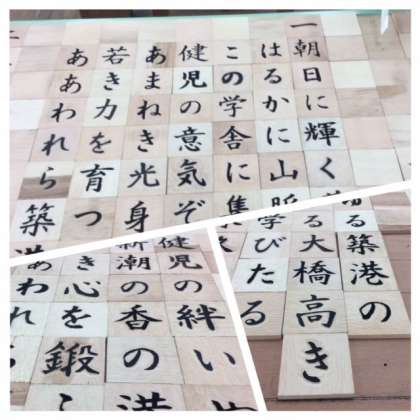 一朝日に輝く
はるかに山
この学舎に集
健児の意気ぞ
あまねき光身
若き力を育つ
ああわれら築
る築港の
る大橋高き
学びたる
健児の絆い
新潮の香の
き心を鍛
あわれ